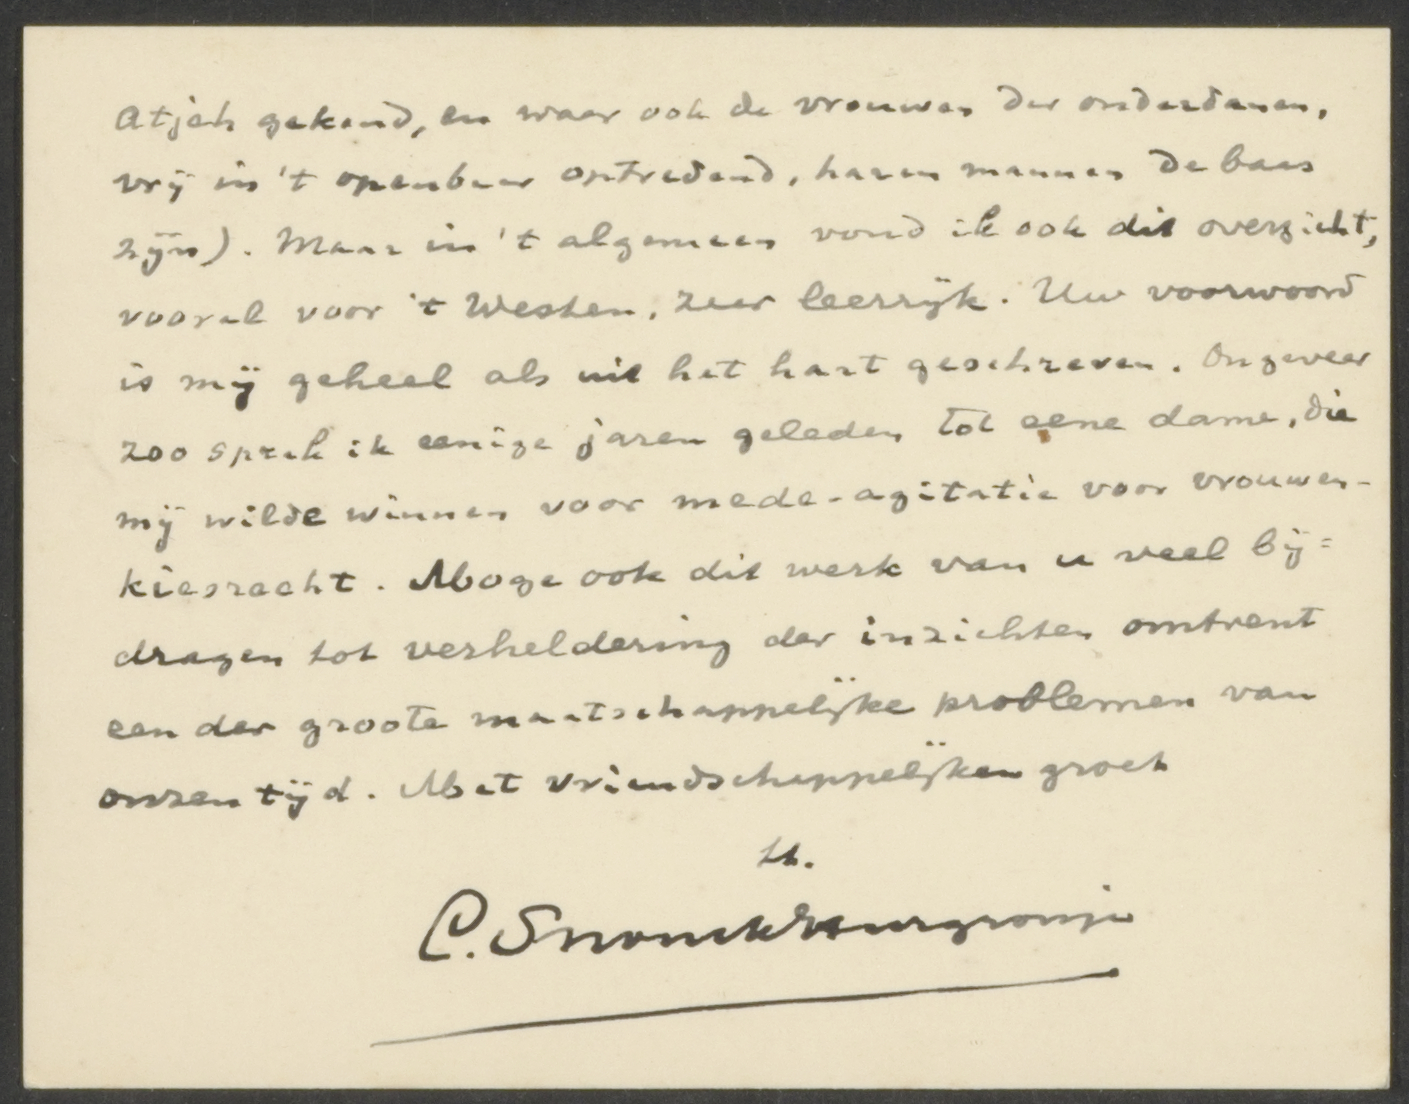 Atjeh gekend, en waar ook de vrouwen der onderdanen,
vrij in 't openbaar optredend, haren mannen de baas
zijn). Maar in 't algemeen vond ik ook dit overzicht,
vooral voor 't Westen, zeer leerrijk. Uw voorwoord
is mij geheel als uit het hart geschreven. Ongeveer
zoo sprak ik eenige jaren geleden tot eene dame, die
mij wilde winnen voor mede-agitatie voor vrouwen-
kiesrecht. Moge ook dit werk van u veel bij=
dragen tot verheldering der inzichten omtrent
een der groote maatschappelijke problemen van
onzen tijd. Met vriendschappelijken groet
C. Snouck Hurgronje